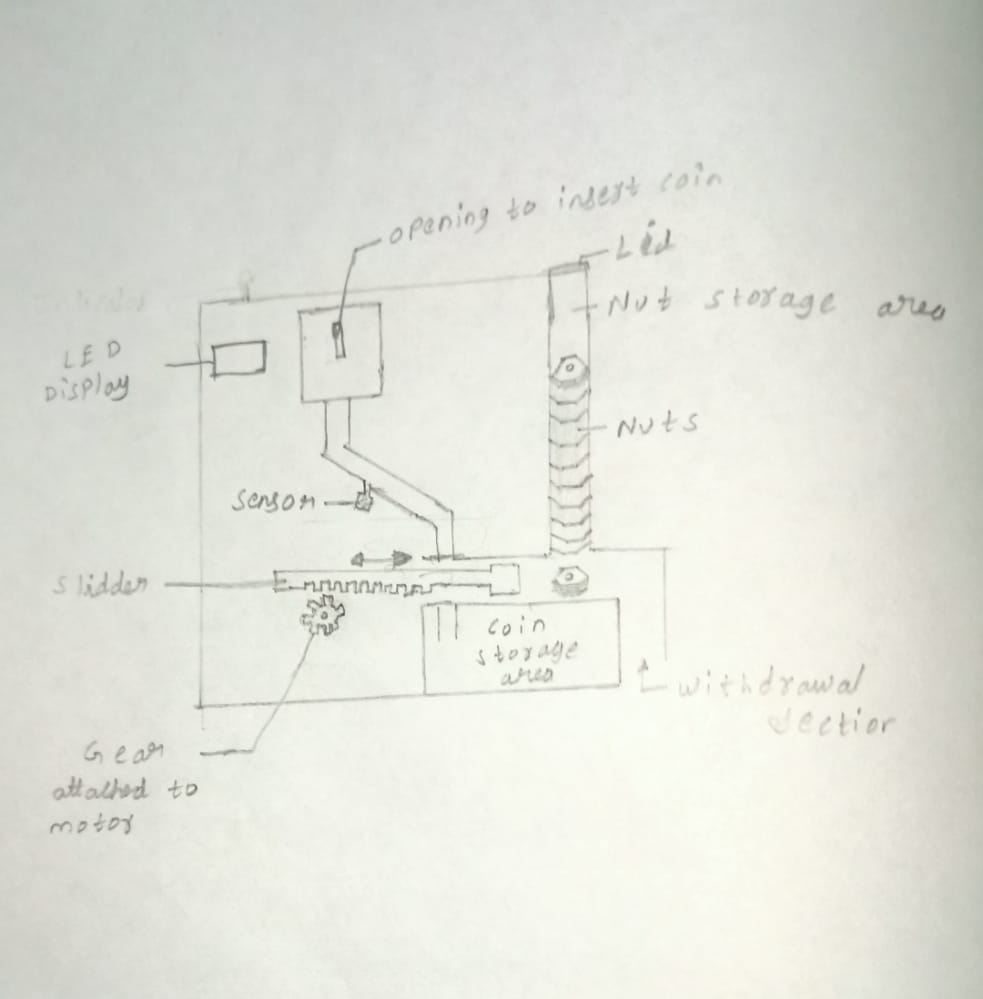 opening to insert coin
Lid
Nut storage area
LED
Display
Nuts
sensor
slidder
coin
storage
area
withdrawal
section
Gear
attached to
motor